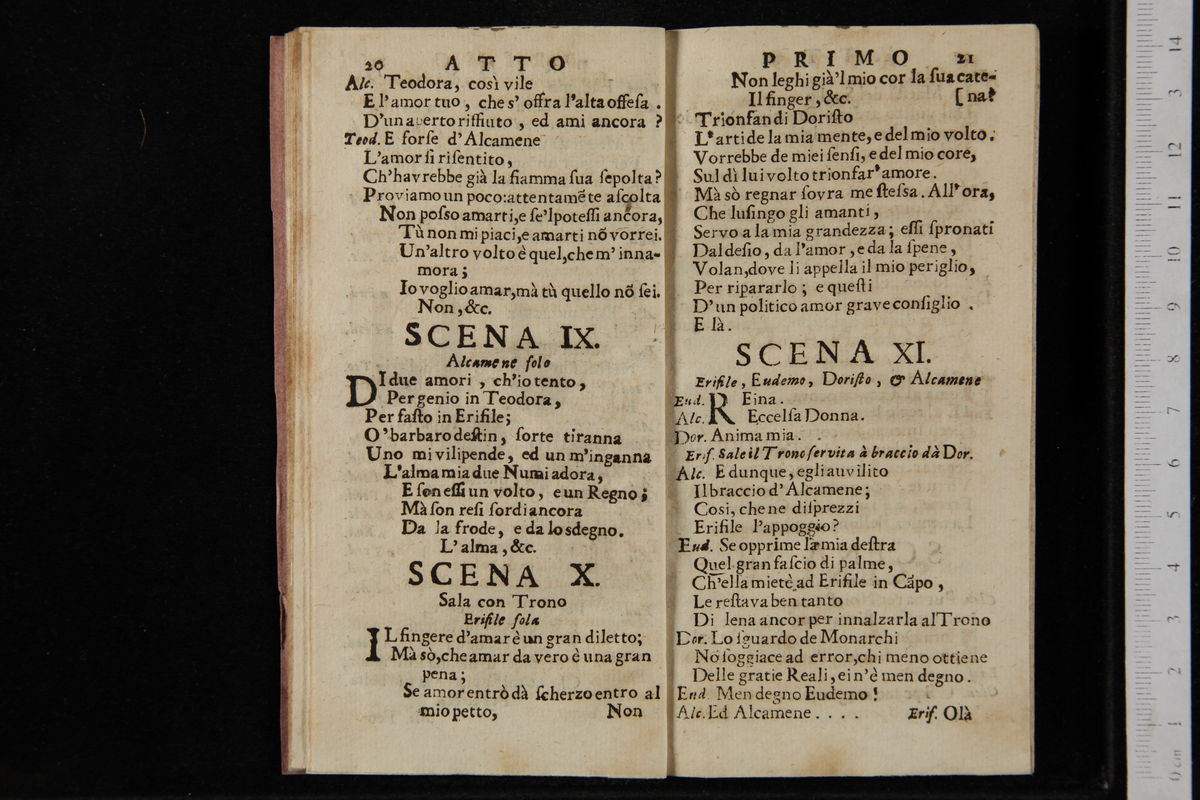 20 ATTO
Alc. Teodora, così vile
E l'amor tuo, che s' offra l'alta offesa.
D'un aperto riffiuto, ed ami ancora?
Teod. E forſe d'Alcamene
L'amor ſi riſentito,
Ch'havrebbe già la fiamma ſua ſepolta?
Proviamo un poco: attentamẽte aſcolta
Non poſso amarti, e ſe'l poteſſi ancora,
Tù non mi piaci, e amarti nõ vorrei.
Un'altro volto è quel, che m' inna-
mora;
Io voglio amar, mà tù quello nõ ſei.
Non, &c.
SCENA IX.
Alcamene ſolo
DI due amori, ch'io tento,
Per genio in Teodora,
Per faſto in Erifile;
O' barbaro deſtin, ſorte tiranna
Uno mi vilipende, ed un m'inganna
L'alma mia due Numi adora,
E ſon eſſi un volto, e un Regno;
Mà ſon reſi ſordi ancora
Da la frode, e da lo sdegno.
L' alma, &c.
SCENA X.
Sala con Trono
Erifile ſola
IL fingere d'amar è un gran diletto;
Mà sò, che amar da vero è una gran
pena;
Se amor entrò dà ſcherzo entro al
mio petto, Non
PRIMO 21
Non leghi già 'l mio cor la ſua cate-
Il finger, &c. [na?
Trionfan di Doriſto
L'arti de la mia mente, e del mio volto.
Vorrebbe de miei ſenſi, e del mio core,
Sul dì lui volto trionfar' amore.
Mà sò regnar ſovra me ſteſsa. All' ora,
Che luſingo gli amanti,
Servo a la mia grandezza; eſſi ſpronati
Dal deſio, da l'amor, e da la ſpene,
Volan, dove li appella il mio periglio,
Per ripararlo; e queſti
D'un politico amor grave conſiglio.
E là.
SCENA XI.
Erifile, Eudemo, Doriſto, & Alcamene
Eud. REina.
Alc. Eccelſa Donna.
Dor. Anima mia.
Erif. Sale il Trono ſervita à braccio dà Dor.
Alc. E dunque, egli auvilito
Il braccio d'Alcamene;
Cosi, che ne diſprezzi
Erifile l'appoggio?
Eud. Se opprime la mia deſtra
Quel gran faſcio di palme,
Ch'ella mietè, ad Erifile in Cãpo,
Le reſtava ben tanto
Di lena ancor per innalzarla al Trono
Dor. Lo ſguardo de Monarchi
Nõ ſoggiace ad error, chi meno ottiene
Delle gratie Reali, ei n'è men degno.
Eud. Men degno Eudemo!
Alc. Ed Alcamene.... Erif. Olà